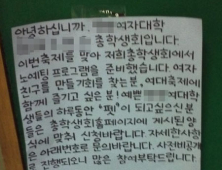 안녕하십니까. 여자대학
총학생회입니다
이번축제를 맞아 저희총학생회에서
노예팅프로그램을 준비했습니다. 여자
친구를 만들기회를 찾는분, 여대축제에
함께 즐기고 싶은 분! 예쁜 여자대학
생들의 하룻동안 "펫"이 되고싶으신분
들은 총학생회홈페이지에 게시된 양
식에 맞춰 신청바랍니다. 자세한사항
은 아래번호로 문의바랍니다. 사전비공개
로 진행되오니 많은 참여부탁드립니다.